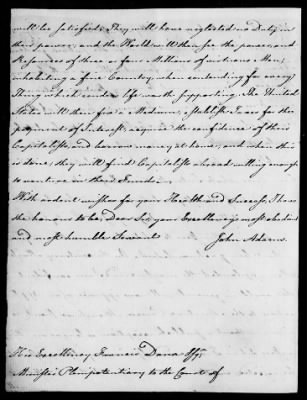 will be satisfied. They will have neglected no Duty in
their power, and the World will then see the power, and
Resources of three or four Millions of virtuous Men,
inhabiting a fine Country, when contending for every
Thing which renders life worth supporting. The United
States will then fix a Medium, establish Taxes for the
payment of Interest, acquire the confidence of their
Capitalists, and borrow money at home, and when this
is done, they will find Capitalists abroad willing enough
to venture in their Funds.
With ardent wishes for your Health and Success, I have
the honour to be, dear Sir, your Excellency's most obedient
and most humble Servant
John Adams.
His Excellency Francis Dana Esqr
Minister Plenipotentiary to the Court of